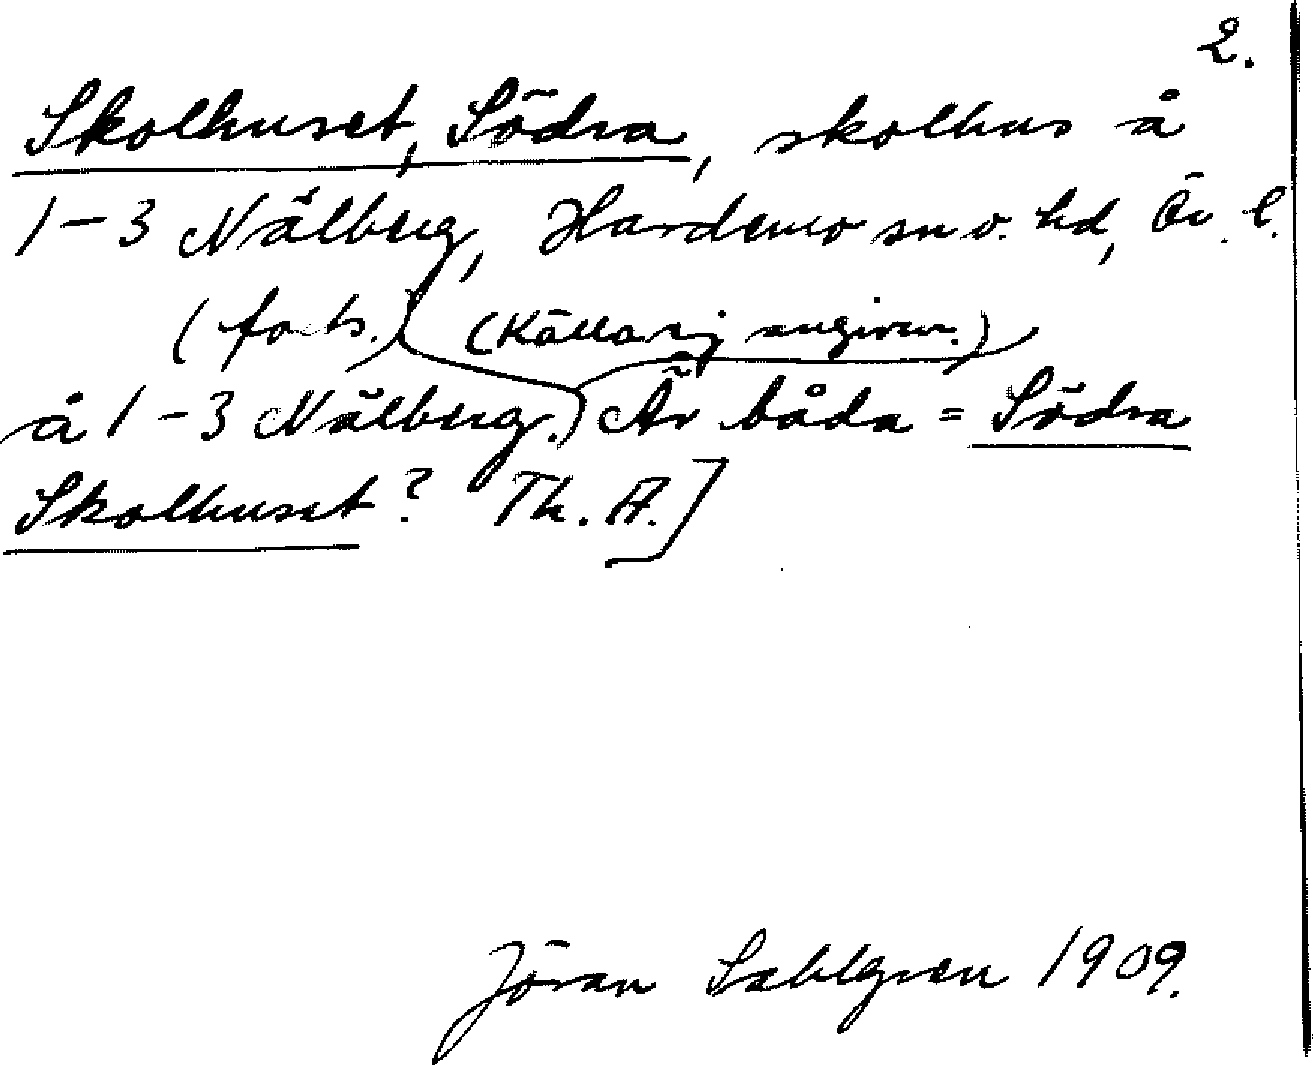 2.
Skolhuset, Södra, skolhus å
1-3 Nälberg, Hardemo sn o. hd, Ör. l.
(forts.) (Källa ej angiven.)
å 1-3 Nälberg.) Är båda = Södra
Skolhuset? Th. A.]
Jöran Sahlgren 1909.